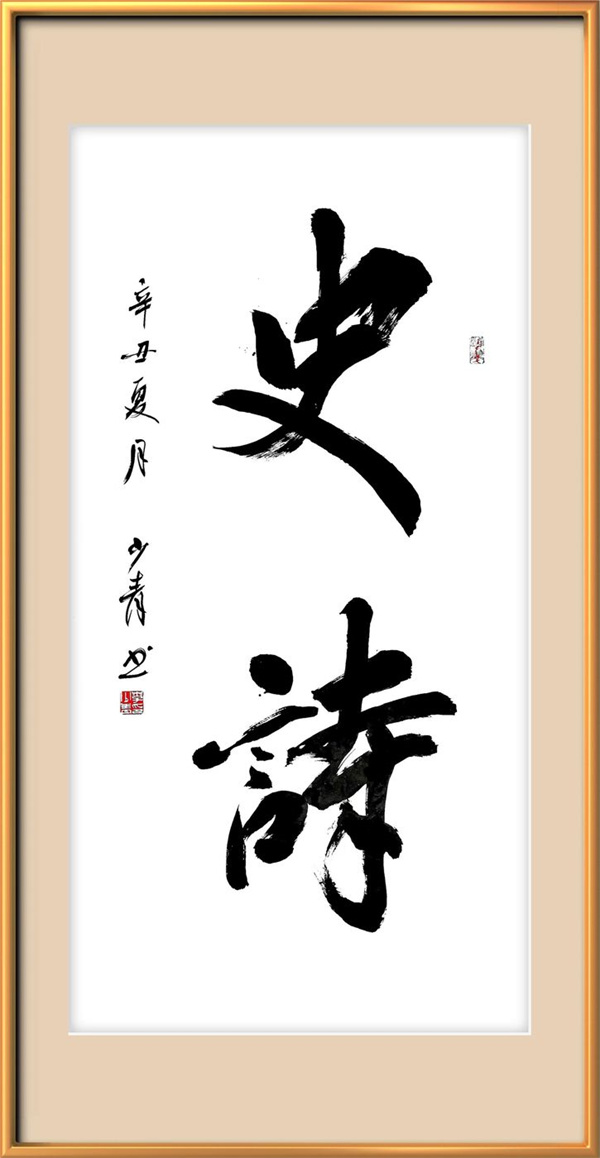 史詩
辛丑夏月 少青书